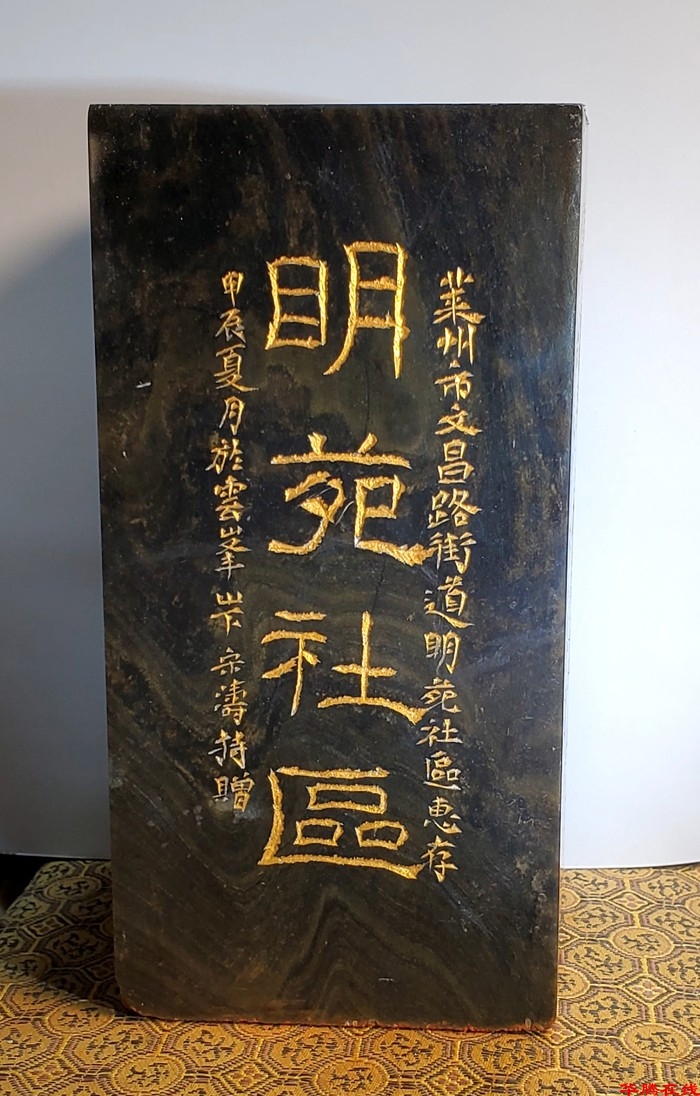 莱州市文昌路街道明苑社區惠存
明苑社區
甲辰夏月於雲峯山下宋濤特贈
华腾在线